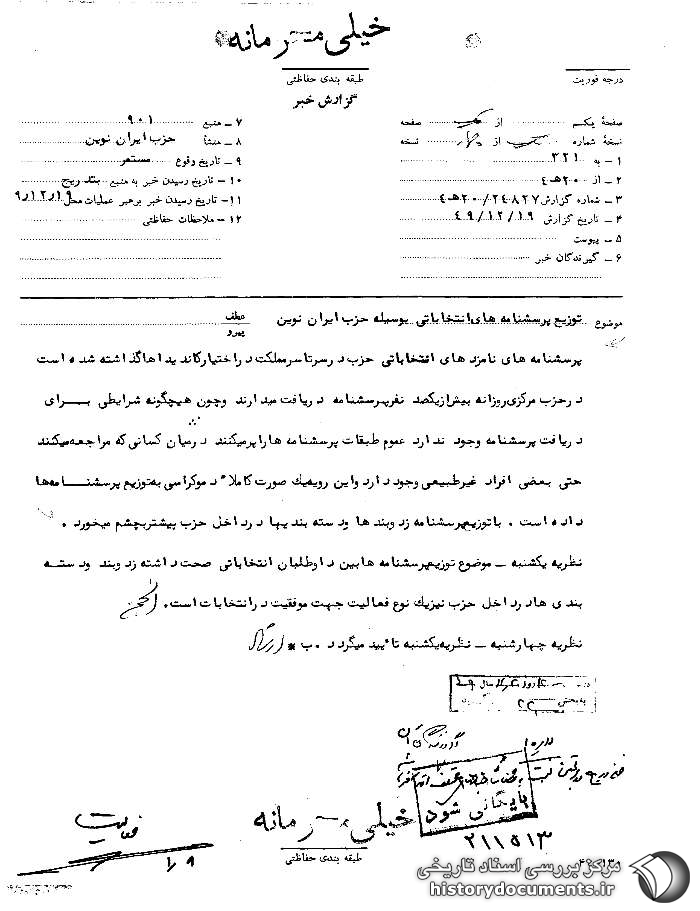 خیلی محرمانه
درجه فوریت
طبقه بندی حفاظتی
گزارش خبر
صفحهٔ یکم از یک صفحه
نسخهٔ شماره یک از چهار نسخه
۱ – به ۳۲۱
۲ – از ۲۰ هـ ۴
۳ – شماره گزارش ۲۴۸۲۷/۲۰ هـ ۴
۴ – تاریخ گزارش ۴۹/۱۲/۱۹
۵ – پیوست
۶ – گیرندگان خبر
۷ – منبع ۹۰۱
۸ – منشأ حزب ایران نوین
۹ – تاریخ وقوع مستمر
۱۰ – تاریخ رسیدن خبر به منبع بتدریج
۱۱ – تاریخ رسیدن خبر برهبر عملیات محل ۹/۱۲/۱۹
۱۲ – ملاحظات حفاظتی
موضوع توزیع پرسشنامه های انتخاباتی بوسیله حزب ایران نوین
عطف
پیرو
پرسشنامه های نامزد های انتخاباتی حزب در سرتاسر مملکت در اختیار کاندیداها گذاشته شده است
در حزب مرکزی روزانه بیش از یکصد نفر پرسشنامه دریافت میدارند وچون هیچگونه شرایطی برای
دریافت پرسشنامه وجود ندارد عموم طبقات پرسشنامه ها را پر میکنند در میان کسانی که مراجعه میکنند
حتی بعضی افراد غیر طبیعی وجود دارد واین رویه یک صورت کاملاً دموکراسی به توزیع پرسشنامه‌ها
داده است . با توزیع پرسشنامه زد وبند ها ودسته بندیها در داخل حزب بیشتر بچشم میخورد .
نظریه یکشنبه – موضوع توزیع پرسشنامه ها بین داوطلبان انتخاباتی صحت داشته زد وبند ودسته
بندی ها در داخل حزب نیز یک نوع فعالیت جهت موفقیت در انتخابات است .
نظریه چهارشنبه – نظریه یکشنبه تائید میگردد . ب *
به بخش ۳۲۱
بایگانی شود
۲۱۱۵۱۳
خیلی محرمانه
طبقه بندی حفاظتی
فعالیت
مرکز بررسی اسناد تاریخی
historydocuments.ir